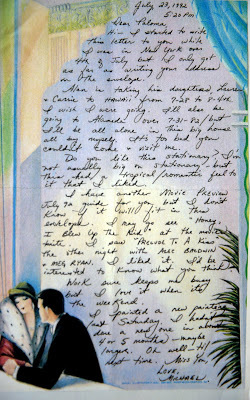 July 23, 1992
5:20 PM
Dear Paloma
Hi. I started to write
this letter to you while
I was in New York over
4th of July but I only got
as far as writing your address
on the envelope.
Max is taking his daughters, Laurel
& Carrie to Hawaii from 7-28 to 8-4
I wish I were going. I'll also be
going to over 7-31-8/2 but
I'll be all alone in this big home
all by myself. It's too bad you
couldn't come & visit me.
Do you like this stationery? I'm
not usually big on stationery but
this had a tropical/romantic feel to
it that I liked.
I have another Movie Preview
July guide for you, but I don't
know if it will fit in this
envelope. I may go see "Honey,
I Blew Up the Kid" at the movies
tonite. I saw "Prelude To A Kiss"
the other night with Alec Baldwin
& Meg Ryan. I liked it. I'd be
interested to know what you think.
Work sure keeps me busy
but I love it when it's
the weekend.
I painted a new painting
last Saturday. I hadn't
done a new one in about
4 or 5 months - maybe
longer. Oh well - til
next time. Miss you,
Love,
Michael